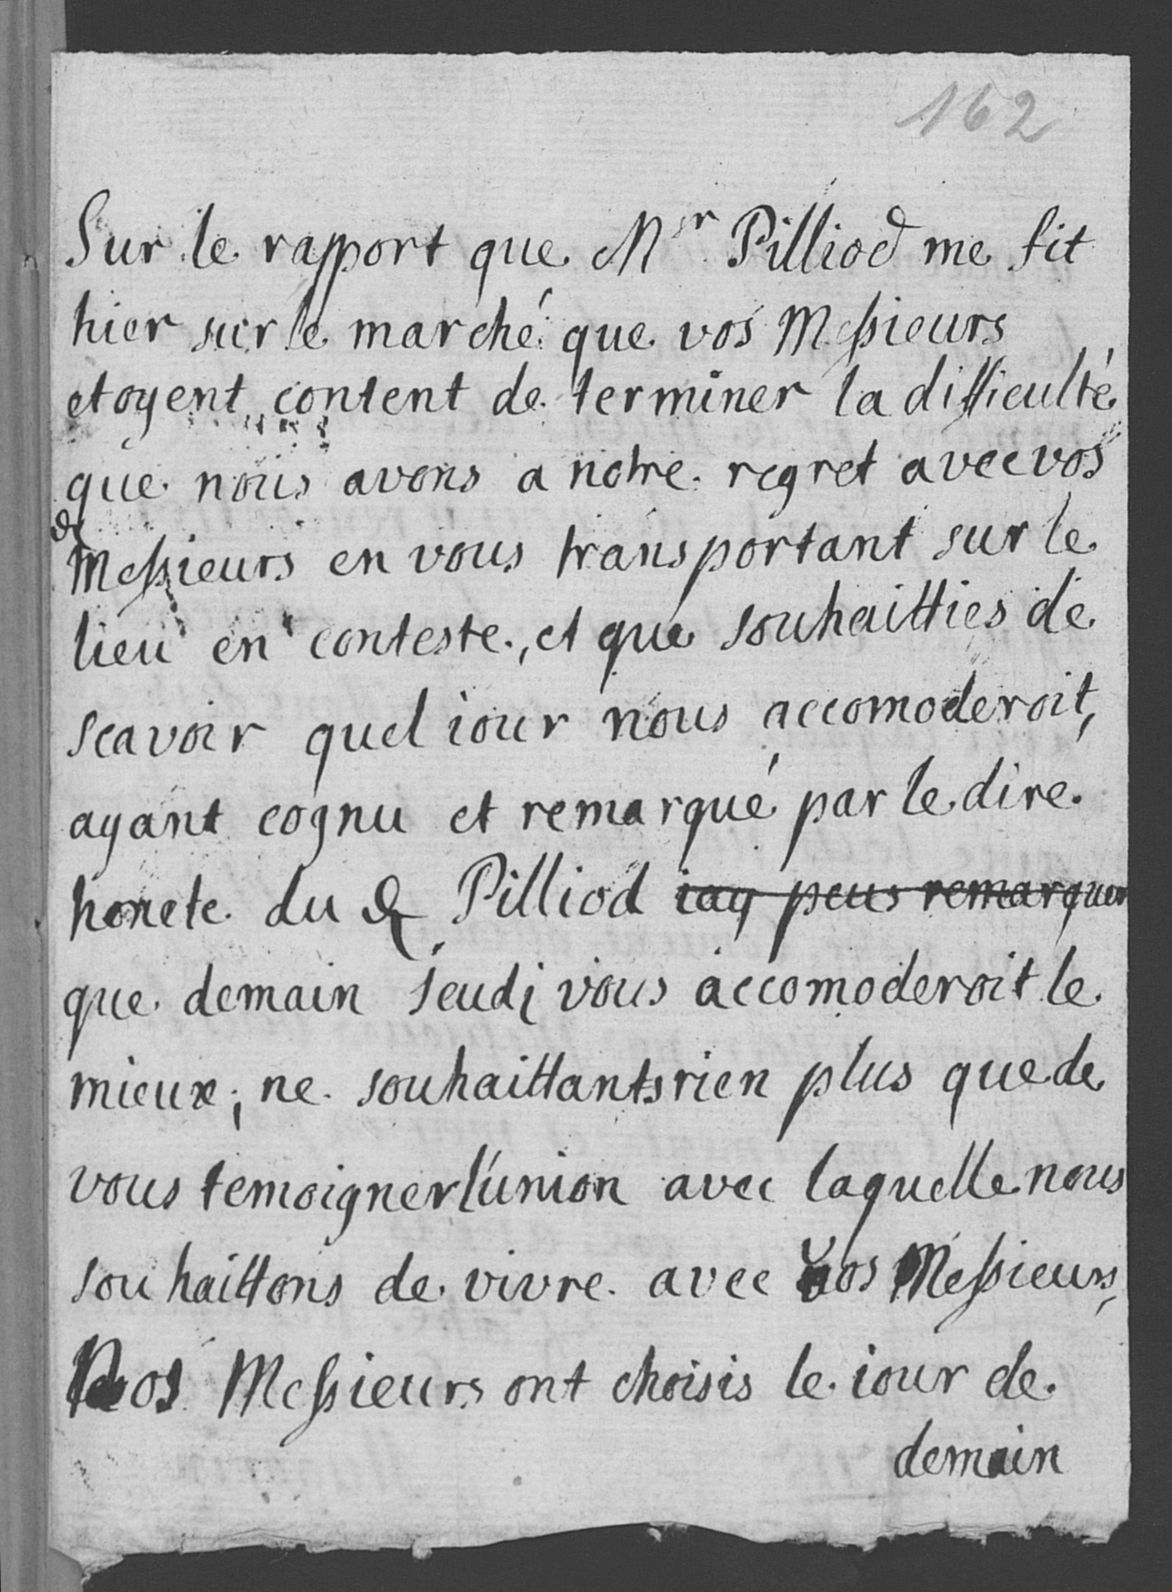 162
Sur le rapport que Mr Pilliod me fit
hier sur le marché que vos Messieurs
etoyent content de terminer la difficulté
que nous avons a notre regret avec vos
Messieurs en vous transportant sur le
lieu en conteste, et que souhaitties de
scavoir quel iour nous accomoderoit,
ayant cognu et remarqué par le dire
honete du Sr Pilliod iay peus remarquer
que demain Jeudi vous accomoderoit le
mieux, ne souhaittants rien plus que de
vous temoigner l'union avec laquelle nous
souhaittons de vivre avec vos Messieurs,
Nos Messieurs ont choisis le iour de
demain